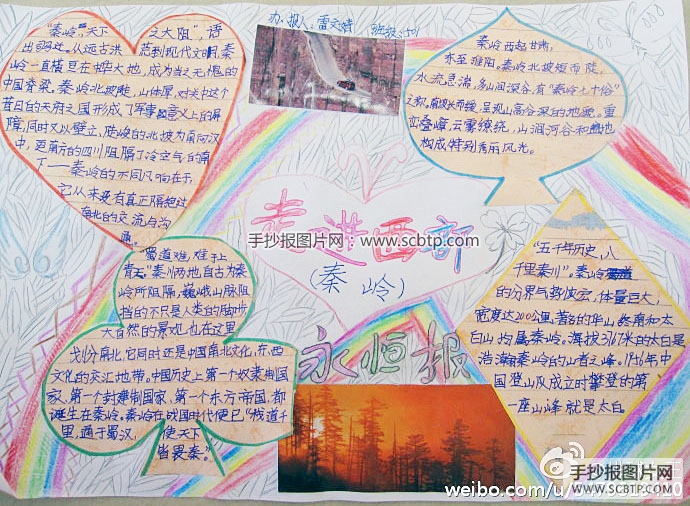 "秦岭,天下之大阻",语
出《》。从远古洪荒到现代文明,秦
岭一直横亘在中华大地,成为当之无愧的
中国脊梁。秦岭北坡陡,山体厚,对关中这个
昔日的天府之国形成了军事意义上的屏
障,同时又以壁立、陡峻的北坡为南向汉
中、更南方的四川阻隔了冷空气的南
下——秦岭的不同凡响在于,
它从来没有真正隔绝过
南北的交流与沟
通。
办报人:雷文婧 班级:501
秦岭西起甘肃,
东至淮阳。秦岭北坡短而陡,
水流急湍,多山涧深谷,有"秦岭七十峪"
之称。南坡长而缓,呈现山高谷深的地貌。重
峦叠嶂,云雾缭绕,山涧河谷和
构成特别秀丽风光。
走进西部
(秦岭)
手抄报图片网:www.scbtp.com
永恒报
"蜀道难,难于上
青天"秦川两地,自古为秦
岭所阻隔,巍峨山脉阻
挡的不只是人类的脚步,
大自然的景观也在这里
划分南北,它同时还是中国南北文化,东西
文化的交汇地带。中国历史上第一个奴隶制国
家、第一个封建制国家、第一个东方帝国,都
诞生在秦岭。秦岭在战国时代便已"栈道千
里,通于蜀汉,使天下
皆畏秦。"
"五千年历史,八
千里秦川",秦岭
的分界气势恢宏,体量巨大,
宽度达200公里,著名的华山、终南和太
白山均属秦岭。海拔3767米的太白是
浩瀚秦岭的山者之峰。1956年中
国登山队成立时攀登的第
一座山峰就是太白。
手抄报图片网
WWW.SCBTP.COM
weibo.com/u/